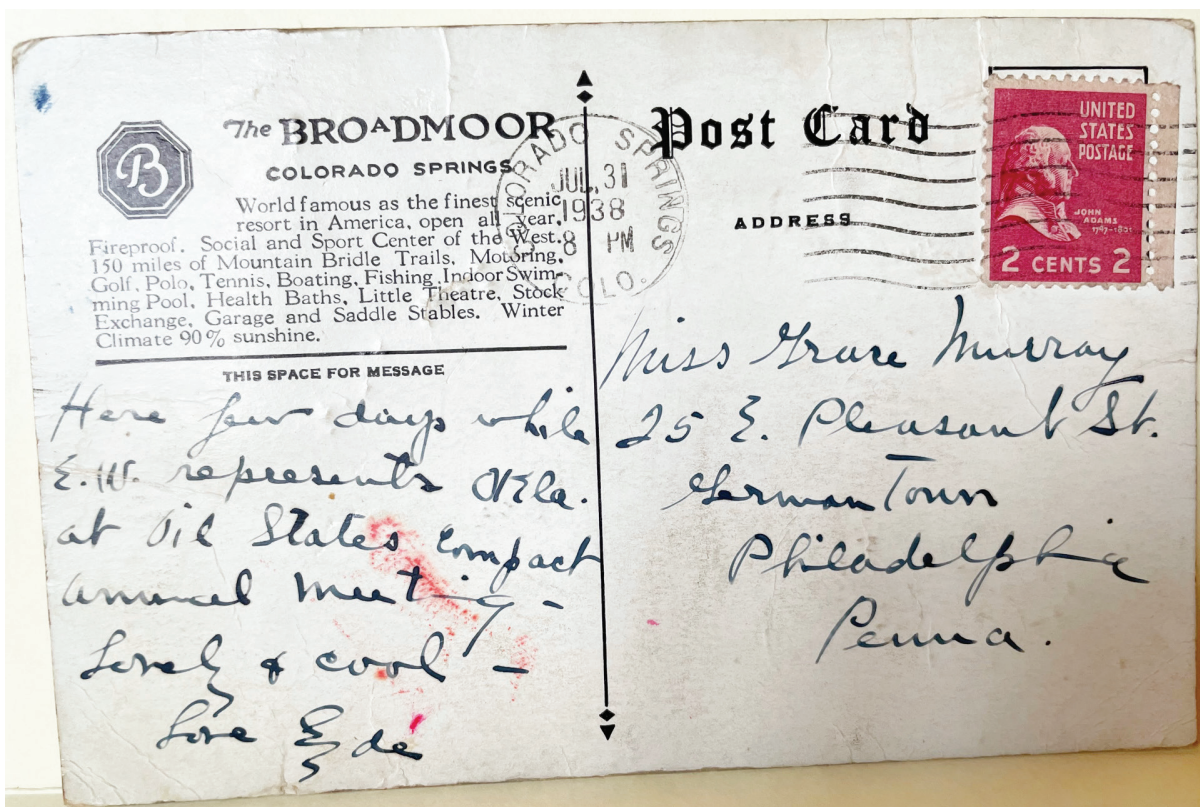 B
The BROADMOOR
COLORADO SPRINGS
World famous as the finest scenic
resort in America, open all year.
Fireproof. Social and Sport Center of the West.
150 miles of Mountain Bridle Trails, Motoring,
Golf, Polo, Tennis, Boating, Fishing, Indoor Swim-
ming Pool, Health Baths, Little Theatre, Stock
Exchange, Garage and Saddle Stables. Winter
Climate 90% sunshine.
THIS SPACE FOR MESSAGE
Here few days while
E.W. represents Okla.
at Oil States Compact
annual meeting -
Lovely & cool -
Love
COLORADO SPRINGS
JUL 31
1938
8 PM
COLO.
Post Card
ADDRESS
UNITED
STATES
POSTAGE
JOHN
ADAMS
1797-1801
2 CENTS 2
Miss Grace Murray
25 E. Pleasant St.
Germantown
Philadelphia
Penna.